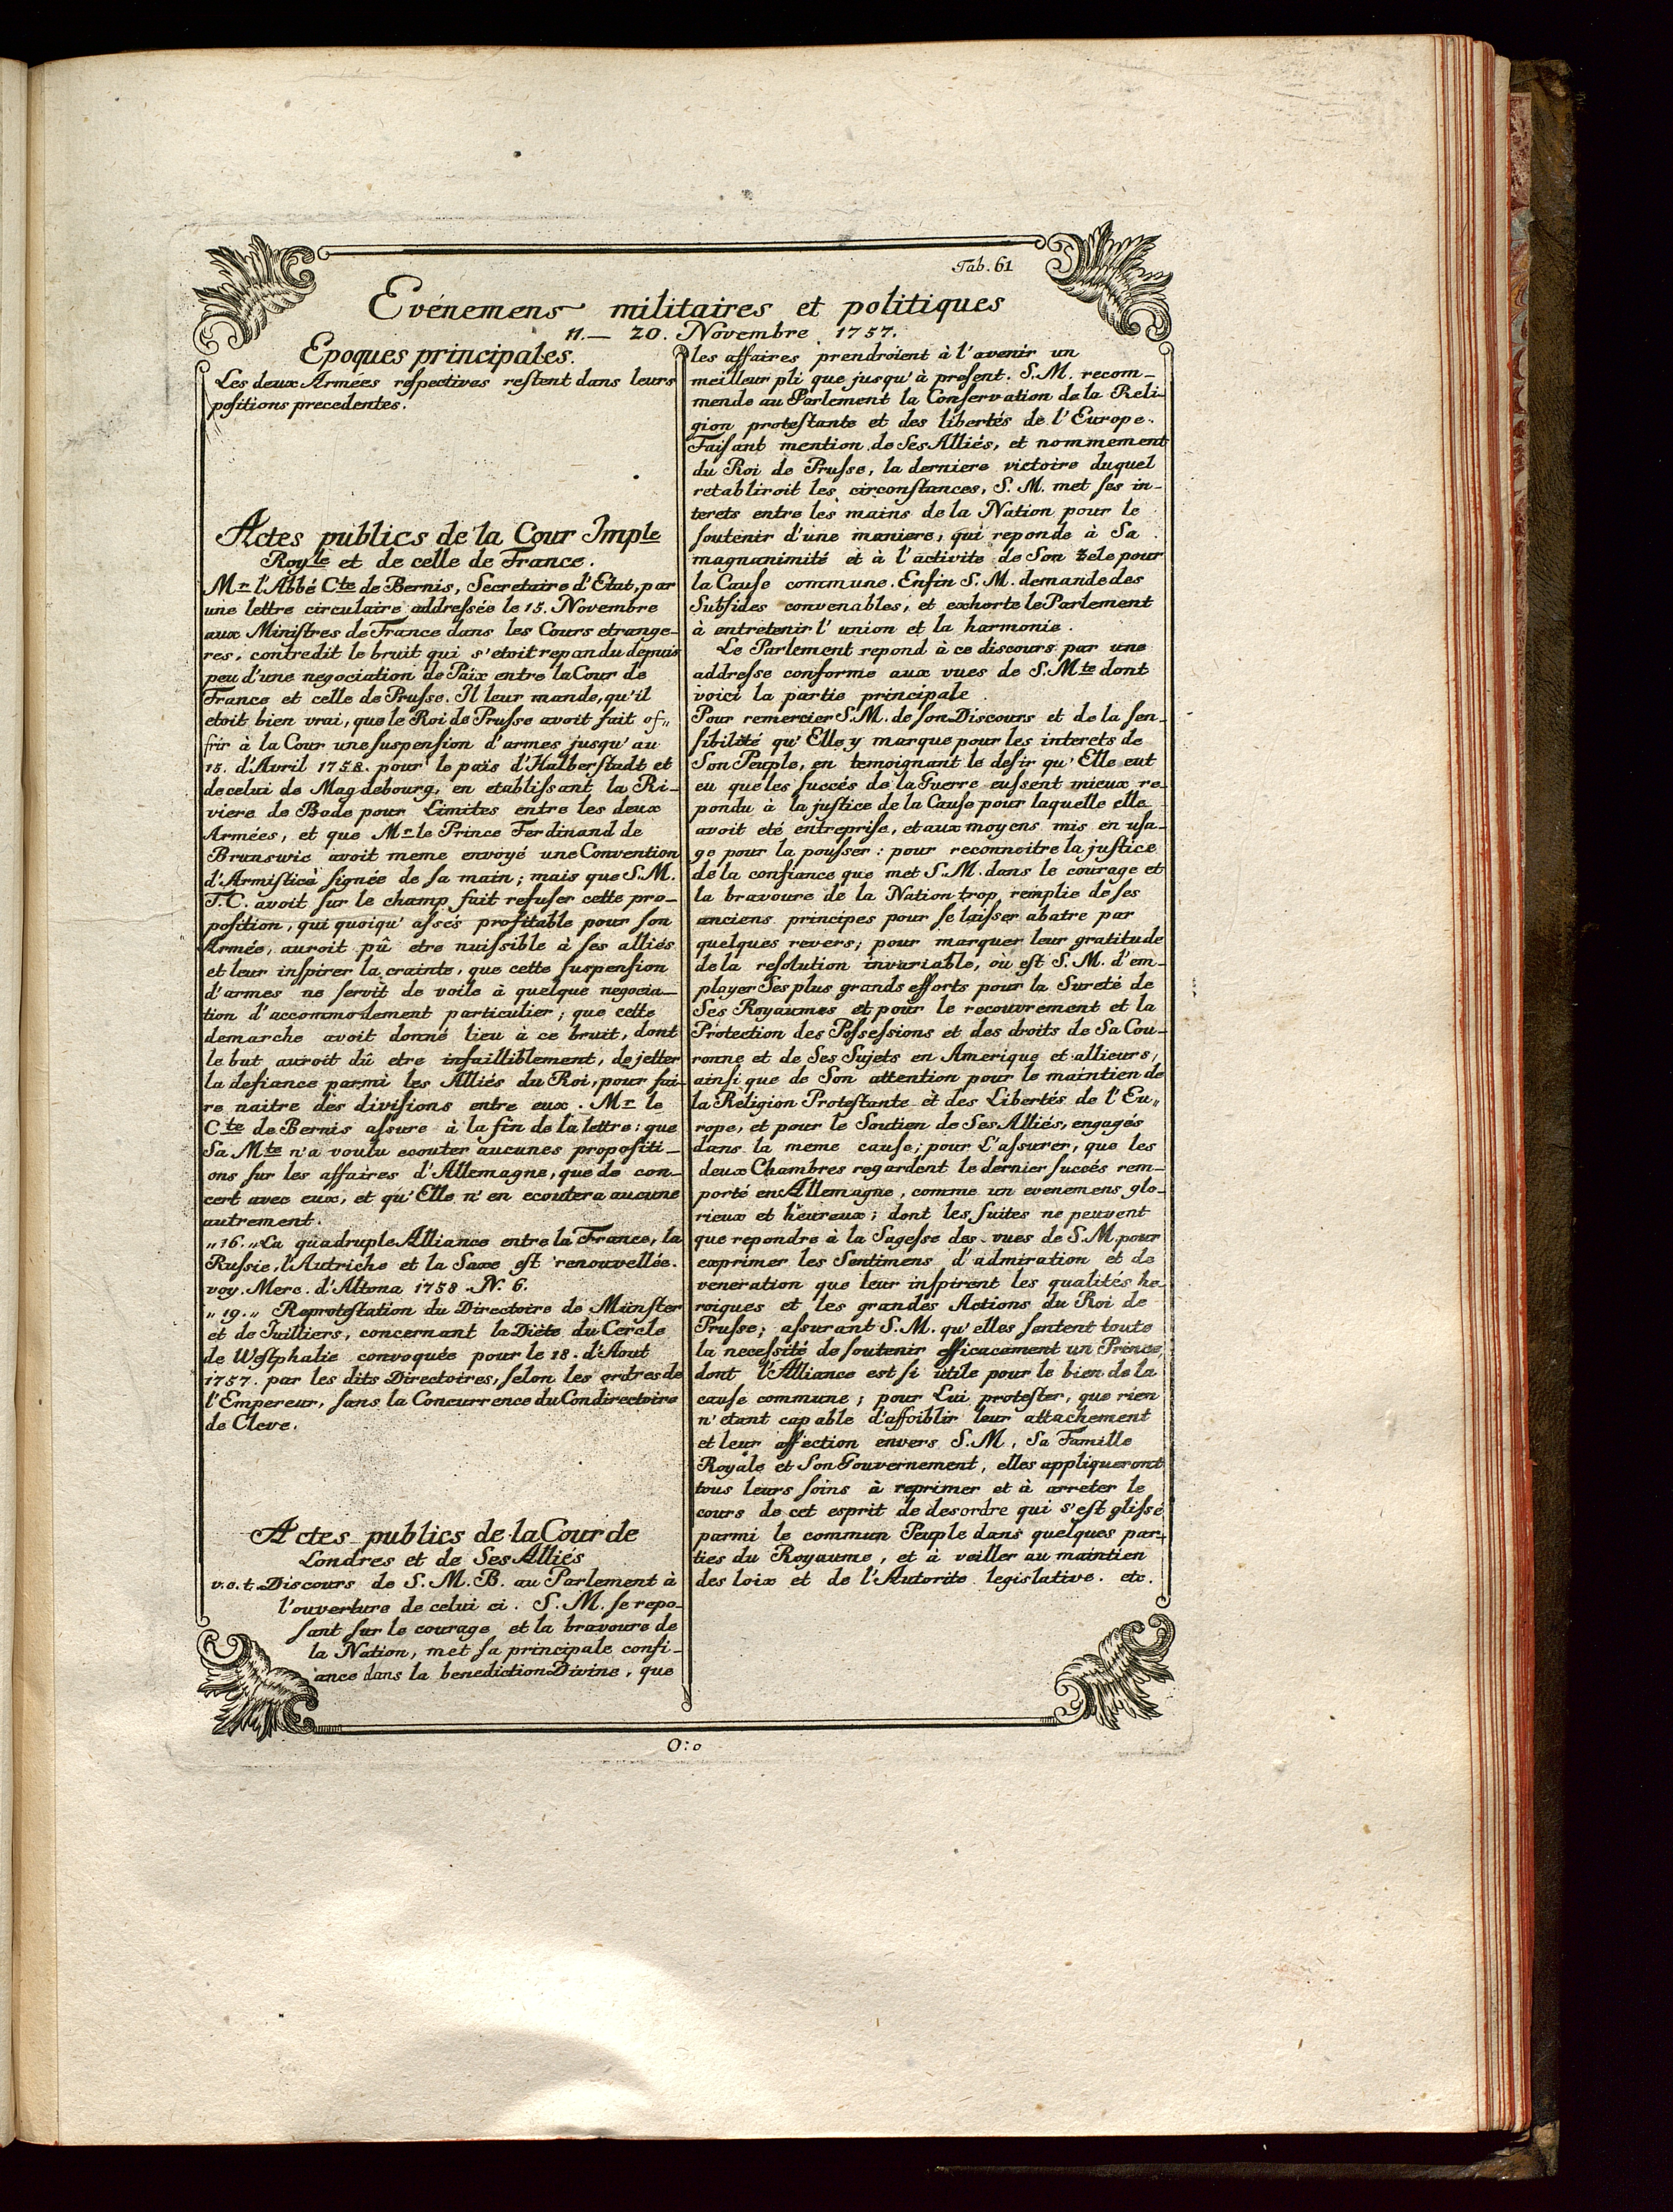 Tab. 61
Evénemens militaires et politiques
11.— 20. Novembre. 1757.
Epoques principales.
Les deux Armées reſpectives reſtent dans leurs
poſitions precedentes.
Actes publics de la Cour Imple
Royle et de celle de France.
Mr l'Abbé Cte de Bernis, Secretaire d'Etat, par
une lettre circulaire addreſsée le 15. Novembre
aux Miniſtres de France dans les Cours etrange-
res, contredit le bruit qui s'etoit repandu depuis
peu d'une negociation de Paix entre la Cour de
France et celle de Pruſse. Il leur mande, qu'il
etoit bien vrai, que le Roi de Pruſse avoit fait of„
frir à la Cour une ſuspenſion d'armes jusqu'au
15. d'Avril 1758. pour le païs d'Halberſtadt et
de celui de Magdebourg, en etabliſsant la Ri-
viere de Bode pour Limites entre les deux
Armées, et que Mr le Prince Ferdinand de
Brunswic avoit meme envoyé une Convention
d'Armiſtice ſignée de ſa main; mais que S. M.
T. C. avoit ſur le champ fait refuſer cette pro-
poſition, qui quoiqu' aſsés profitable pour ſon
Armée, auroit pû etre nuiſsible à ſes alliés
et leur inſpirer la crainte, que cette ſuspenſion
d'armes ne ſervit de voile à quelque negocia-
tion d'accommodement particulier; que cette
demarche avoit donné lieu à ce bruit, dont
le but auroit dû etre infailliblement, de jetter
la defiance parmi les Alliés du Roi, pour fai-
re naitre des diviſions entre eux. Mr le
Cte de Bernis aſsure à la fin de la lettre: que
Sa Mte n'a voulu ecouter aucunes propoſiti-
ons ſur les affaires d'Allemagne, que de con-
cert avec eux, et qu'Elle n'en ecoutera aucune
autrement.
„16.„ La quadruple Alliance entre la France, la
Ruſsie, l'Autriche et la Saxe eſt renouvellée.
voy. Merc. d'Altona 1758. N. 6.
„19.„ Reproteſtation du Directoire de Münſter
et de Juilliers, concernant la Diète du Cercle
de Weſtphalie convoquée pour le 18. d'Aout
1757. par les dits Directoires, ſelon les ordres de
l'Empereur, ſans la Concurrence du Condirectoire
de Cleve.
Actes publics de la Cour de
Londres et de Ses Alliés
v. e. t. Discours de S. M. B. au Parlement à
l'ouverture de celui ci. S. M. ſe repo-
ſant ſur le courage et la bravoure de
la Nation, met ſa principale confi-
ance dans la benediction Divine, que
les affaires prendroient à l'avenir un
meilleur pli que jusqu'à preſent. S. M. recom-
mende au Parlement la Conſervation de la Reli-
gion proteſtante et des libertés de l'Europe.
Faiſant mention de Ses Alliés, et nommement
du Roi de Pruſse, la derniere victoire duquel
retabliroit les circonſtances, S. M. met ſes in-
terets entre les mains de la Nation pour le
ſoutenir d'une maniere, qui reponde à Sa
magnanimité et à l'activite de Son zele pour
la Cauſe commune. Enfin S. M. demande des
Subſides convenables, et exhorte le Parlement
à entretenir l'union et la harmonie.
Le Parlement repond à ce discours par une
addreſse conforme aux vues de S. Mte dont
voici la partie principale.
Pour remercier S. M. de ſon Discours et de la ſen-
ſibilité qu'Elle y marque pour les interets de
Son Peuple, en temoignant le deſir qu'Elle eut
eu que les ſuccés de la Guerre euſsent mieux re-
pondu à la juſtice de la Cauſe pour laquelle elle
avoit eté entrepriſe, et aux moyens mis en uſa-
ge pour la pouſser: pour reconnoitre la juſtice
de la confiance que met S. M. dans le courage et
la bravoure de la Nation trop remplie de ſes
anciens principes pour ſe laiſser abatre par
quelques revers; pour marquer leur gratitude
de la reſolution invariable, où eſt S. M. d'em-
ployer Ses plus grands efforts pour la Sureté de
Ses Royaumes et pour le recouvrement et la
Protection des Poſseſsions et des droits de Sa Cou-
ronne et de Ses Sujets en Amerique et allieurs,
ainſi que de Son attention pour le maintien de
la Religion Proteſtante et des Libertés de l'Eu„
rope, et pour le Soutien de Ses Alliés, engagés
dans la meme cauſe; pour L'aſsurer, que les
deux Chambres regardent le dernier ſuccés rem-
porté en Allemagne, comme un evenemens glo-
rieux et heureux; dont les ſuites ne peuvent
que repondre à la Sageſse des vues de S. M. pour
exprimer les Sentimens d'admiration et de
veneration que leur inſpirent les qualités he-
roiques et les grandes Actions du Roi de
Pruſse; aſsurant S. M. qu'elles ſentent toute
la neceſsité de ſoutenir efficacement un Prince,
dont l'Alliance est ſi utile pour le bien de la
cauſe commune; pour Lui proteſter, que rien
n'etant capable d'affoiblir leur attachement
et leur affection envers S. M, Sa Famille
Royale et Son Gouvernement, elles appliqueront
tous leurs ſoins à reprimer et à arreter le
cours de cet esprit de desordre qui s'eſt gliſsé
parmi le commun Peuple dans quelques par-
ties du Royaume, et à veiller au maintien
des loix et de l'Autorite legislative. etc.
O:o